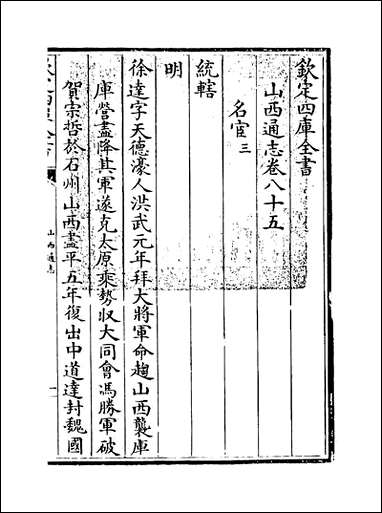 欽定四庫全書
山西通志卷八十五
名宦三
統轄
明
徐達字天德濠人洪武元年拜大將軍命趨山西襲庫
庫營盡降其軍遂克太原乘勢收大同會馮勝軍破
賀宗哲於石州山西盡平五年復出中道達封魏國
欽定四庫全書
山西通志
一